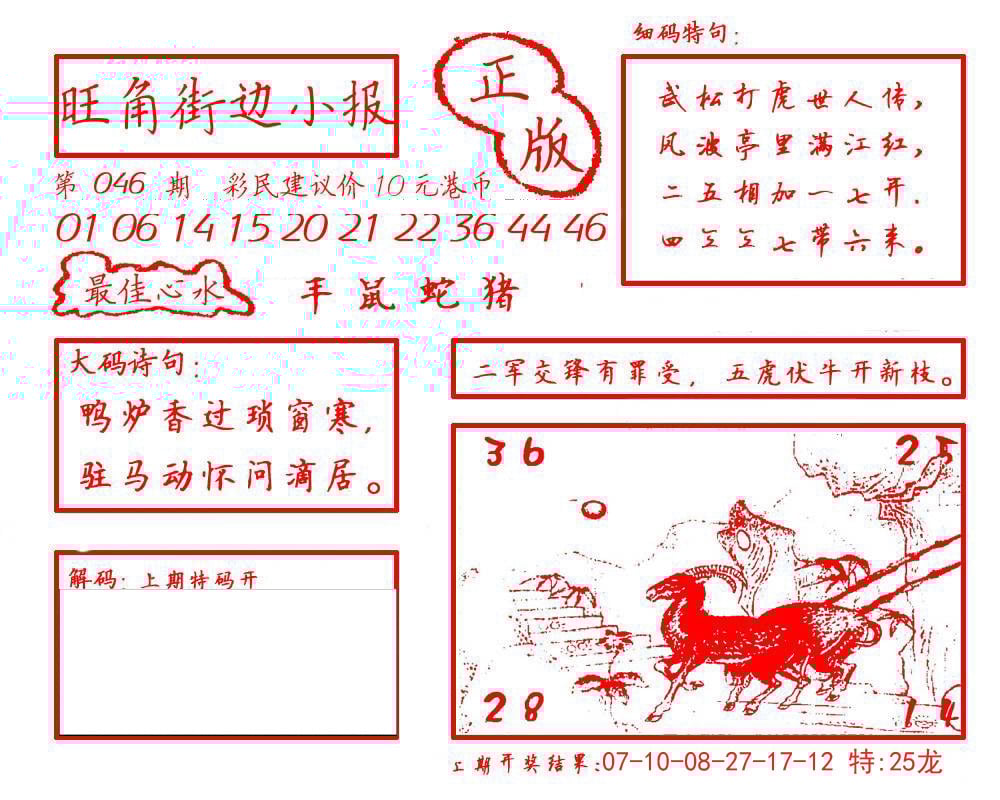 旺角街边小报
正
版
第 046 期 彩民建议价 10 元港币
01 06 14 15 20 21 22 36 44 46
最佳心水 羊 鼠 蛇 猪
细码特句：
武松打虎世人传，
风波亭里满江红，
二五相加一七开.
四三三七带六来。
大码诗句：
鸭炉香过琐窗寒，
驻马动怀问滴居。
二军交锋有罪受， 五虎伏牛开新枝。
36 25
28 14
解码：上期特码开
上期开奖结果：07-10-08-27-17-12 特:25龙